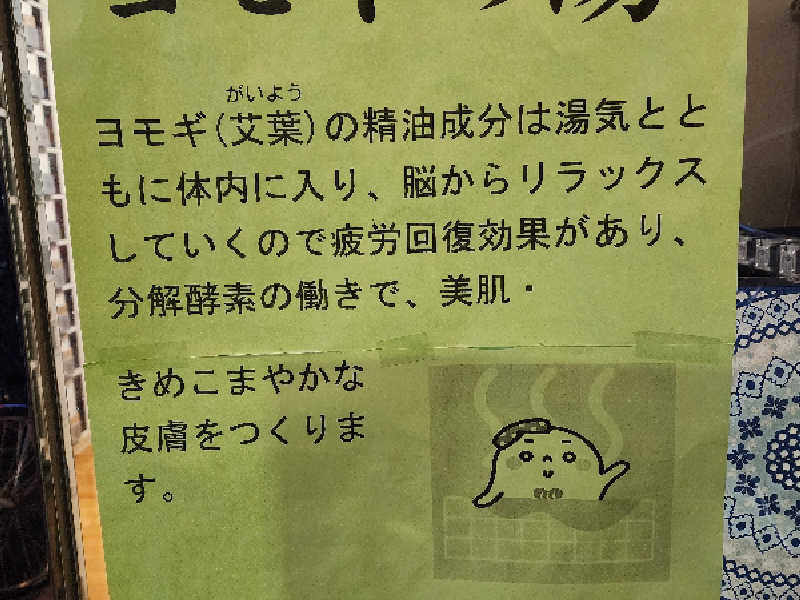 ヨモギの湯
がいよう
ヨモギ(艾葉)の精油成分は湯気とと
もに体内に入り、脳からリラックス
していくので疲労回復効果があり、
分解酵素の働きで、美肌・
きめこまやかな
皮膚をつくりま
す。